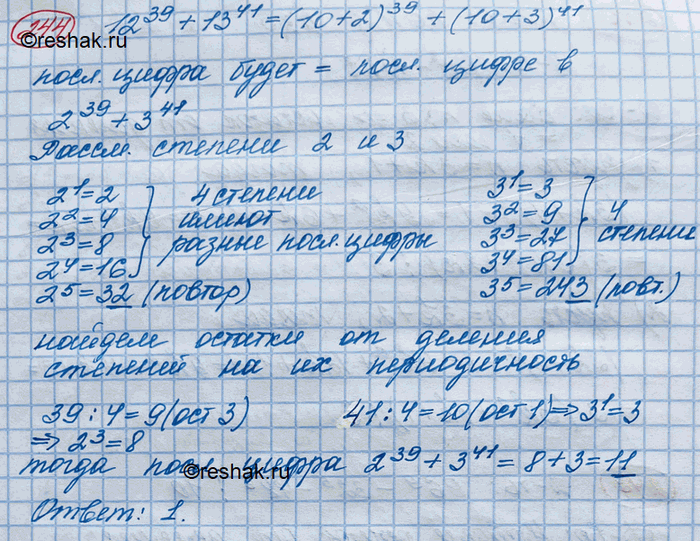 144 12^39 + 13^41 = (10+2)^39 + (10+3)^41
©reshak.ru
посл. цифра будет = посл. цифре в
2^39 + 3^41
Рассм. степени 2 и 3
2^1 = 2 4 степени 3^1 = 3
2^2 = 4 имеют 3^2 = 9 4
2^3 = 8 разные посл. цифры 3^3 = 27 степени
2^4 = 16 3^4 = 81
2^5 = 32 (повтор) 3^5 = 243 (повт.)
найдем остатки от деления
степеней на их периодичность
39 : 4 = 9 (ост 3) 41 : 4 = 10 (ост 1) ⇒ 3^1 = 3
⇒ 2^3 = 8
тогда посл. цифра 2^39 + 3^41 = 8 + 3 = 11
©reshak.ru
Ответ: 1.